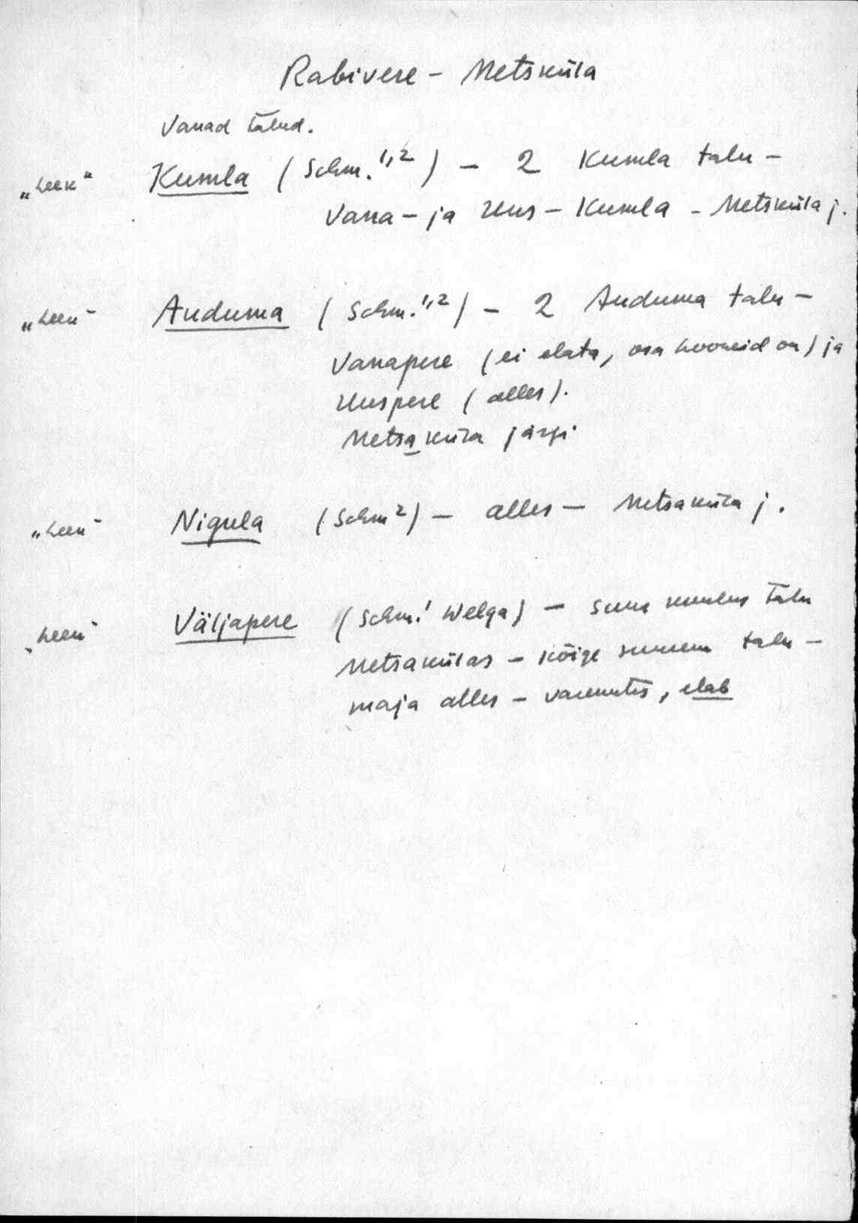 Rabivere – Metsküla
Vanad talud.
„Leen“ Kumla (Schm.¹,²) – 2 Kumla talu –
Vana- ja Uus-Kumla – Metsküla j.
„Leen“ Auduma (Schm.¹,²) – 2 Auduma talu –
Vanapere (ei elata, osa hooneid on) ja
Uuspere (alles).
Metsaküla järgi
„Leen“ Nigula (Schm²) – alles – Metsaküla j.
„Leen“ Väljapere (Schm.¹ Welga) – talu
Metsakülas – kõige suurem talu –
maja alles – varemetes, elab